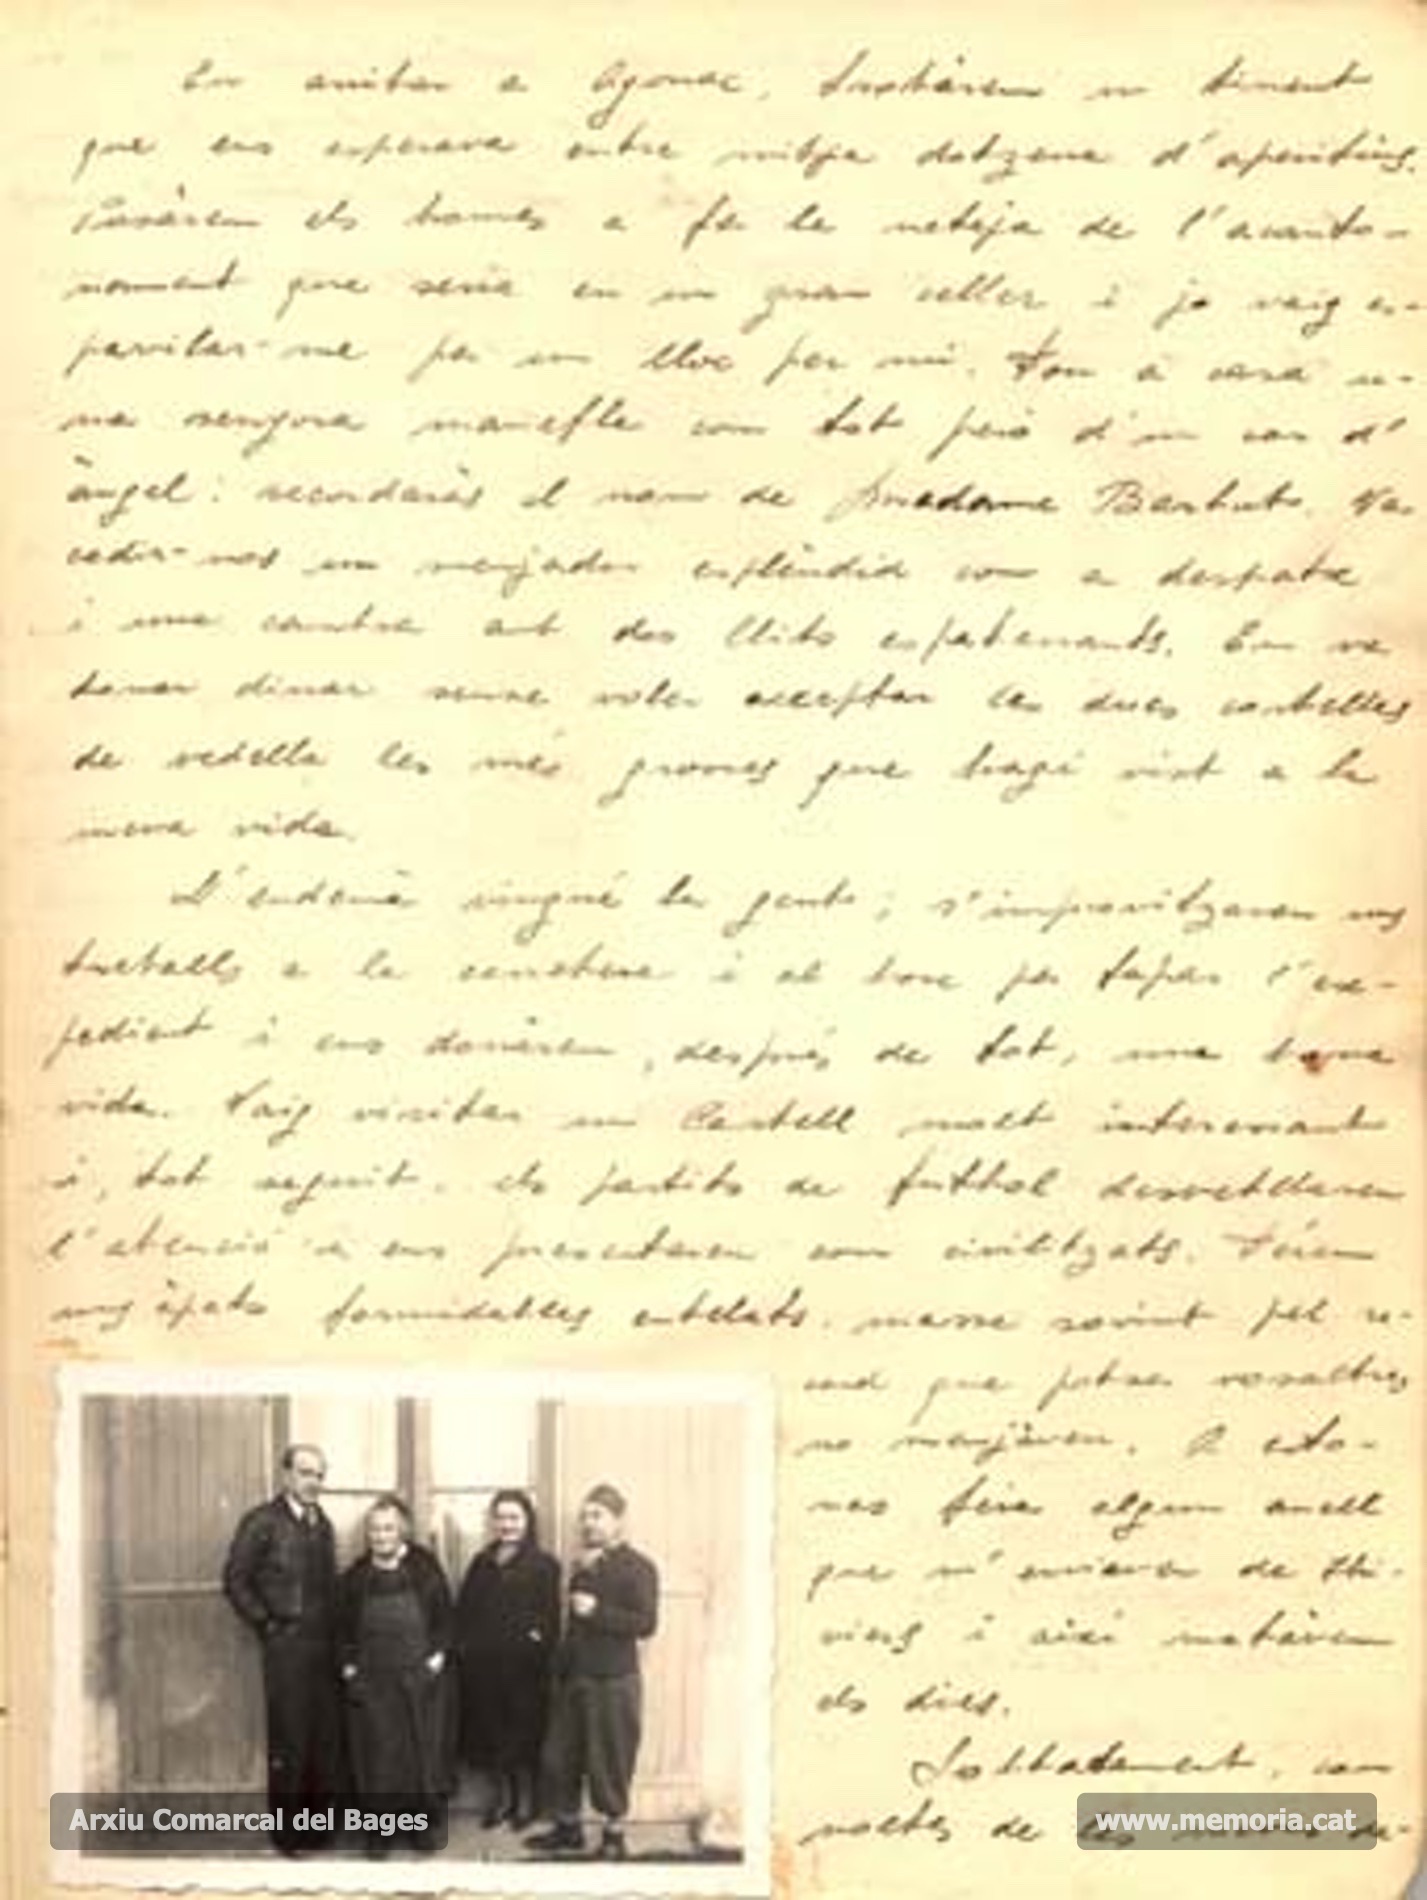 En arribar a Agonac, trobàrem un tinent
que ens esperava entre mitja dotzena d'aperitius.
Posàrem els homes a fer la neteja de l'acanto-
nament que seria en un gran celler i jo vaig es-
pavilar-me per un lloc per mi. Fou a casa u-
na senyora maniefla com tot però d'un cor d'
àngel: recordaràs el nom de Madame Bertuts. Va
cedir-nos un menjador esplèndid com a despatx
i una cambra amb dos llits espaterrants. Em va
donar dinar sense voler acceptar les dues costelles
de vedella les més grosses que hagi vist a la
meva vida.
L'endemà vingué la gent; s'improvitzaren uns
treballs a la carretera i al bosc per tapar l'ex-
pedient i ens donàrem, després de tot, una bona
vida. Vaig visitar un Castell molt interessant
i, tot seguit, els partits de futbol desvetllaren
l'atenció i ens presentaren com civilitzats. Férem
uns àpats formidables entelats, massa sovint pel re-
cord que potser vosaltres
no menjàveu. A esto-
nes feia algun anell
que m'enviaven de Thi-
viers i així matàvem
els dies.
Sobtadament, com
moltes de les
Arxiu Comarcal del Bages
www.memoria.cat